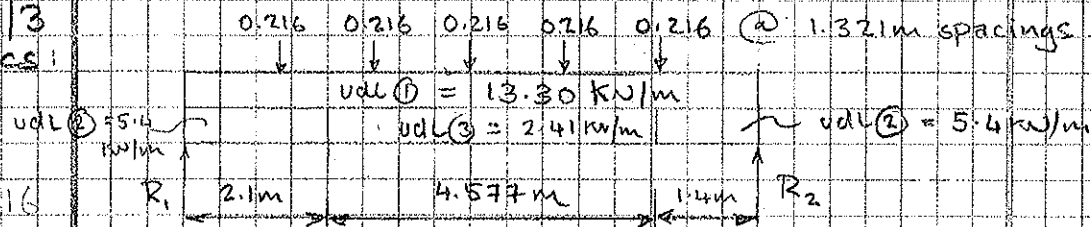 13 0.216 0.216 0.216 0.216 0.216 @ 1.321m spacings.
cs:
udl ① = 13.30 KN/m
udl ② = 5.4 KN/m udl ③ = 2.41 KN/m udl ② = 5.4 KN/m
16 R₁ 2.1m 4.577m 1.4m R₂